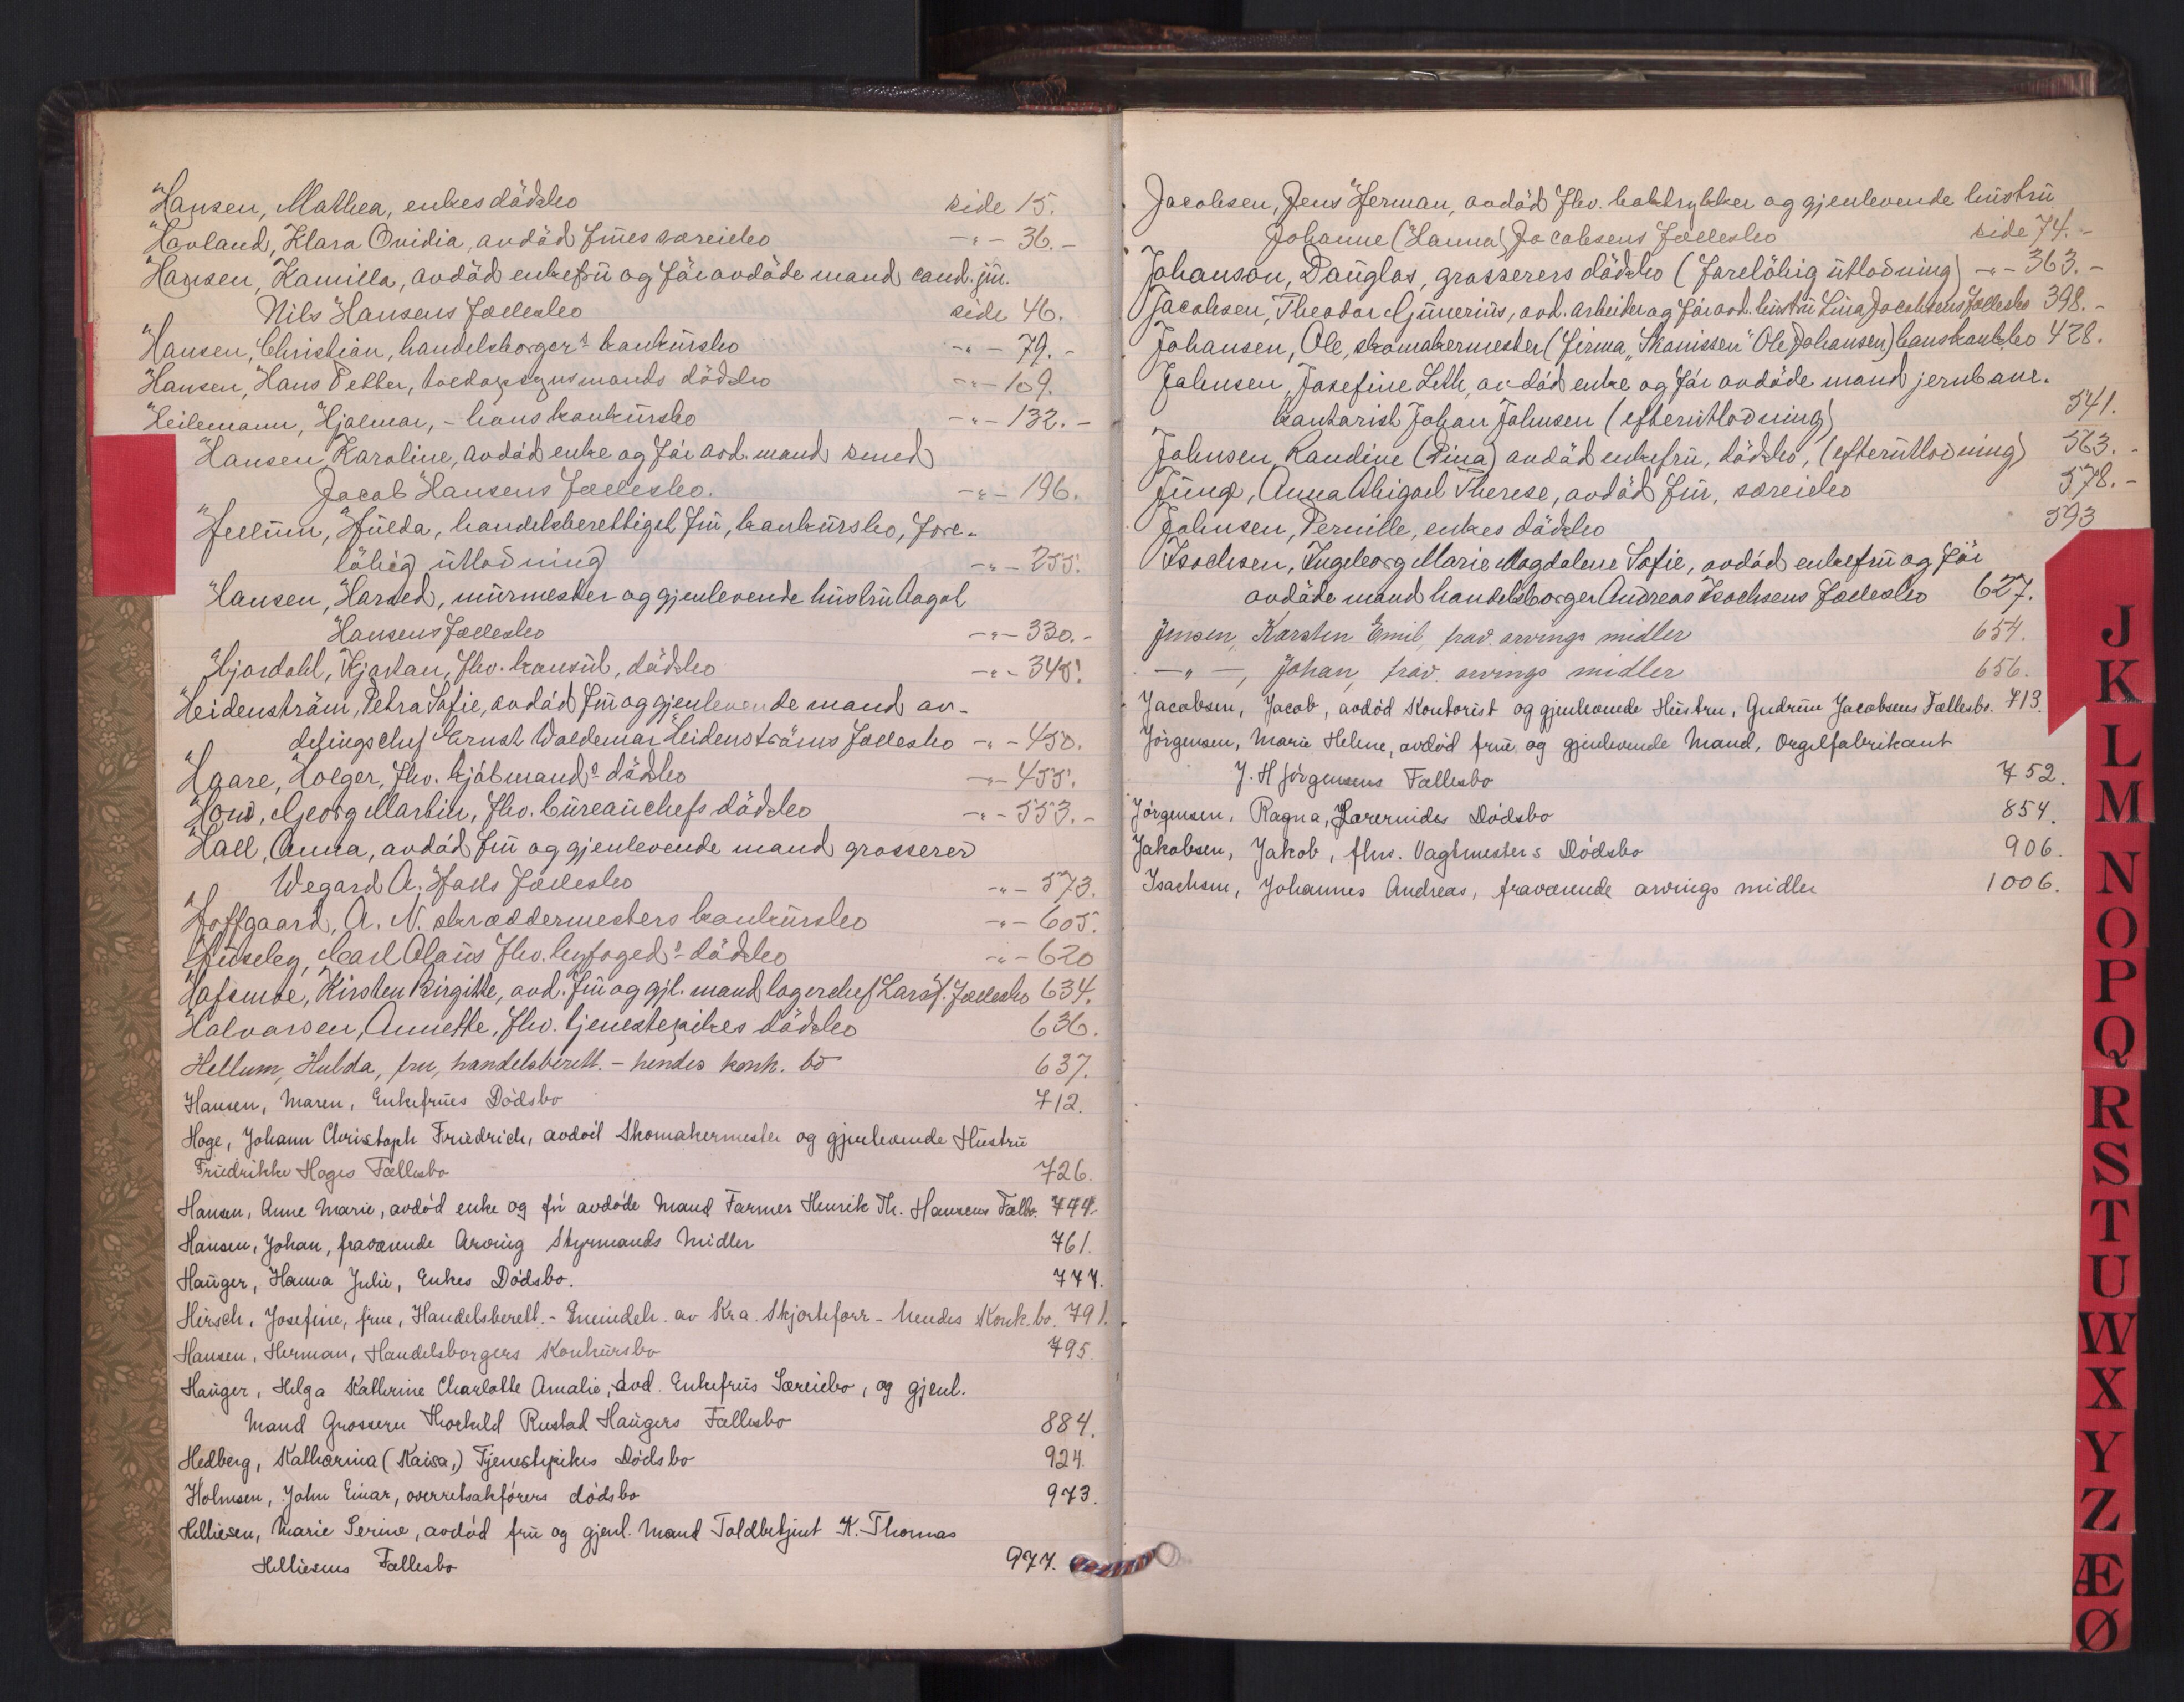 Hansen, Mathea, enkes dödsbo side 15.
Havland, Klara Ovidia, avdöd frues særeiebo -"- 36.-
Hansen, Kamilla, avdöd enkefrü og för avdöde mand cand. jür.
Nils Hansens fællesbo side 46.
Hansen, Christian, handelsborgers konkürsbo -"- 79.-
Hansen, Hans Petter, dödsbo -"- 109.
Heilemann, Hjalmar, - hans konkürsbo -"- 132.-
Hansen, Karoline, avdöd enke og för avd. mand smed
Jacob Hansens fællesbo. -"- 196.
Hellüm, Hülda, handelsberettiget frü, konkürsbo, fore-
löbig ütlodning -"- 255.
Hansen, Harald, mürmester og gjenlevende hüstrü Aagot
Hansens fællesbo -"- 330.-
Hjordahl, Kjartan, fhv. konsül, dödsbo -"- 345.
Heidenström, Petra Sofie, avdöd frü og gjenlevende mand av-
delingschef Ernst Waldemar Heidenströms fællesbo -"- 450.
Haare, Holger, fhv. kjöbmands dödsbo -"- 455.
Georg Martin, fhv. büreauchefs dödsbo -"- 553.-
Hall, Anna, avdöd frü og gjenlevende mand grosserer
Wegard A. Halls fællesbo -"- 573.
Hoffgaard, A. N. skræddermesters konkürsbo -"- 605.
Hüseby, Carl Olaüs fhv. byfogeds dödsbo -"- 620
Hafsmoe, Kirsten Birgitte, avd. frü og gjl. mand lagerchef Lars H. fællesbo 634.
Halvorsen, Annette, fhv. tjenestepikes dödsbo 636.
Hellum, Hulda, fru, handelsberett. - hendes konk. bo 637.
Hansen, Maren, Enkefrües Dödsbo 712.
Hoge, Johann Christoph Friedrich, avdöd Skomakermester og gjenlevende Hüstrü
Friedrikke Hoges Fællesbo 726.
Hansen, Anne Marie, avdöd enke og för avdöde Mand Farmer Henrik Th. Hansens Fællb. 744.
Hansen, Johan, fraværende Arving Styrmands Midler 761.
Haüger, Hanna Julie, Enkes Dödsbo. 777.
Hirsch, Josefine, frue, Handelsberett. - Eneindeh. av Kra. Skjorteforr - hendes Konk. bo. 791.
Hansen, Herman, Handelsborgers Konkürsbo 795.
Haüger, Helga Kathrine Charlotte Amalie, avd. Enkefrüs Særeiebo, og gjenl.
Mand Grosserer Thorkild Rustad Haügers Fællesbo 884.
Hedberg, Katharina (Kaisa,) Tjenestepikes Dödsbo 924.
Holmsen, John Einar, overretsakförers dödsbo 973.
Helliesen, Marie Serine, avdöd frü og gjenl. Mand Toldbetjent K. Thomas
Helliesens Fællesbo 977.
Jacobsen, Jens Herman, avdöd fhv. boktrykker og gjenlevende hüstrü
Johanne (Hanna) Jacobsens fællesbo side 74.-
Johanson, Daüglas, grosserers dödsbo (foreløbig ütlodning) -"- 363.-
Jacobsen, Theodor Günerius, avd. arbeider og för avd. hüstrü Lina Jacobsens fællesbo 398.-
Johansen, Ole, skomakermester (firma "Skanissen" Ole Johansen) hans konkbo 428.
Johnsen, Josefine Leth, avdöd enke og för avdöde mand jernbane-
kontorist Johan Johnsen (efterütlodning) 541.
Johnsen, Randine (Dina) avdöd enkefrü, dödsbo, (efterütlodning) 563.-
Jüng, Anna Abigael Therese, avdöd frü, særeiebo 578.-
Johnsen, Pernille, enkes dödsbo 593
Isachsen, Ingeborg Marie Magdalene Sofie, avdöd enkefrü og för
avdöde mand handelsborger Andreas Isachsens fællesbo 627.
Jensen, Karsten Emil, frav. arvings midler 654.
-"-, Johan, frav. arvings midler 656.
Jacobsen, Jacob, avdöd Kontorist og gjenlevende Hüstru, Gudrün Jacobsens Fællesbo. 713.
Jörgensen, Marie Helene, avdöd frue og gjenlevende Mand, Orgelfabrikant
J. H. Jörgensens Fællesbo 752.
Jörgensen, Ragna, Lærerindes Dödsbo 854.
Jakobsen, Jakob, fhv. Vagtmesters Dödsbo 906.
Isachsen, Johannes Andreas, fraværende arvings midler 1006.
J
K
L
M
N
O
P
Q
R
S
T
U
W
X
Y
Z
Æ
Ø